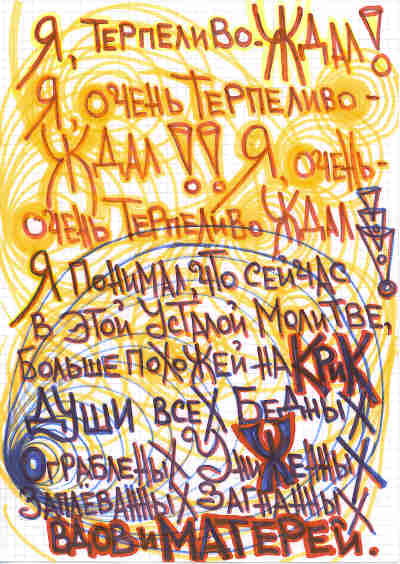 Я, ТЕРПЕЛИВО-ЖДАЛ!
Я, ОЧЕНЬ ТЕРПЕЛИВО-
ЖДАЛ!! Я, ОЧЕНЬ-
ОЧЕНЬ ТЕРПЕЛИВО ЖДАЛ!!!
Я ПОНИМАЛ, ЧТО СЕЙЧАС
В ЭТОЙ УСТАЛОЙ МОЛИТВЕ,
БОЛЬШЕ ПОХОЖЕЙ-НА КРИК
ДУШИ ВСЕХ БЕДНЫХ
ОГРАБЛЕНЫХ УНИЖЕННЫХ
ЗАПЛЁВАННЫХ ЗАГНАННЫХ
ВДОВ И МАТЕРЕЙ.